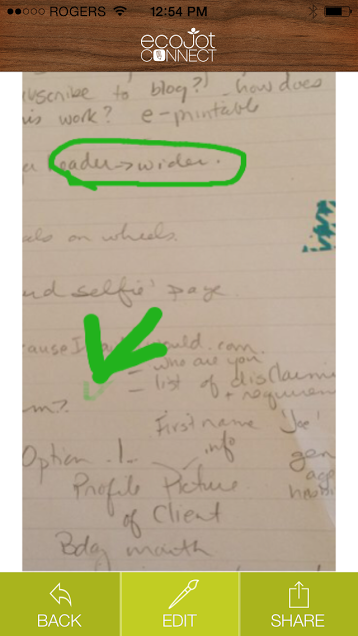 ROGERS 12:54 PM
ecojot
CONNECT
subscribe to blog?! how does
this work? e-printable
header → wider.
als on wheels.
nd selfie' page.
causeI could.com.
= who are you
= list of disclaim
+ requirem
m?
First name 'Joe'
Option 1. info
gen
Profile Picture
age
of Client
Bday month
BACK EDIT SHARE